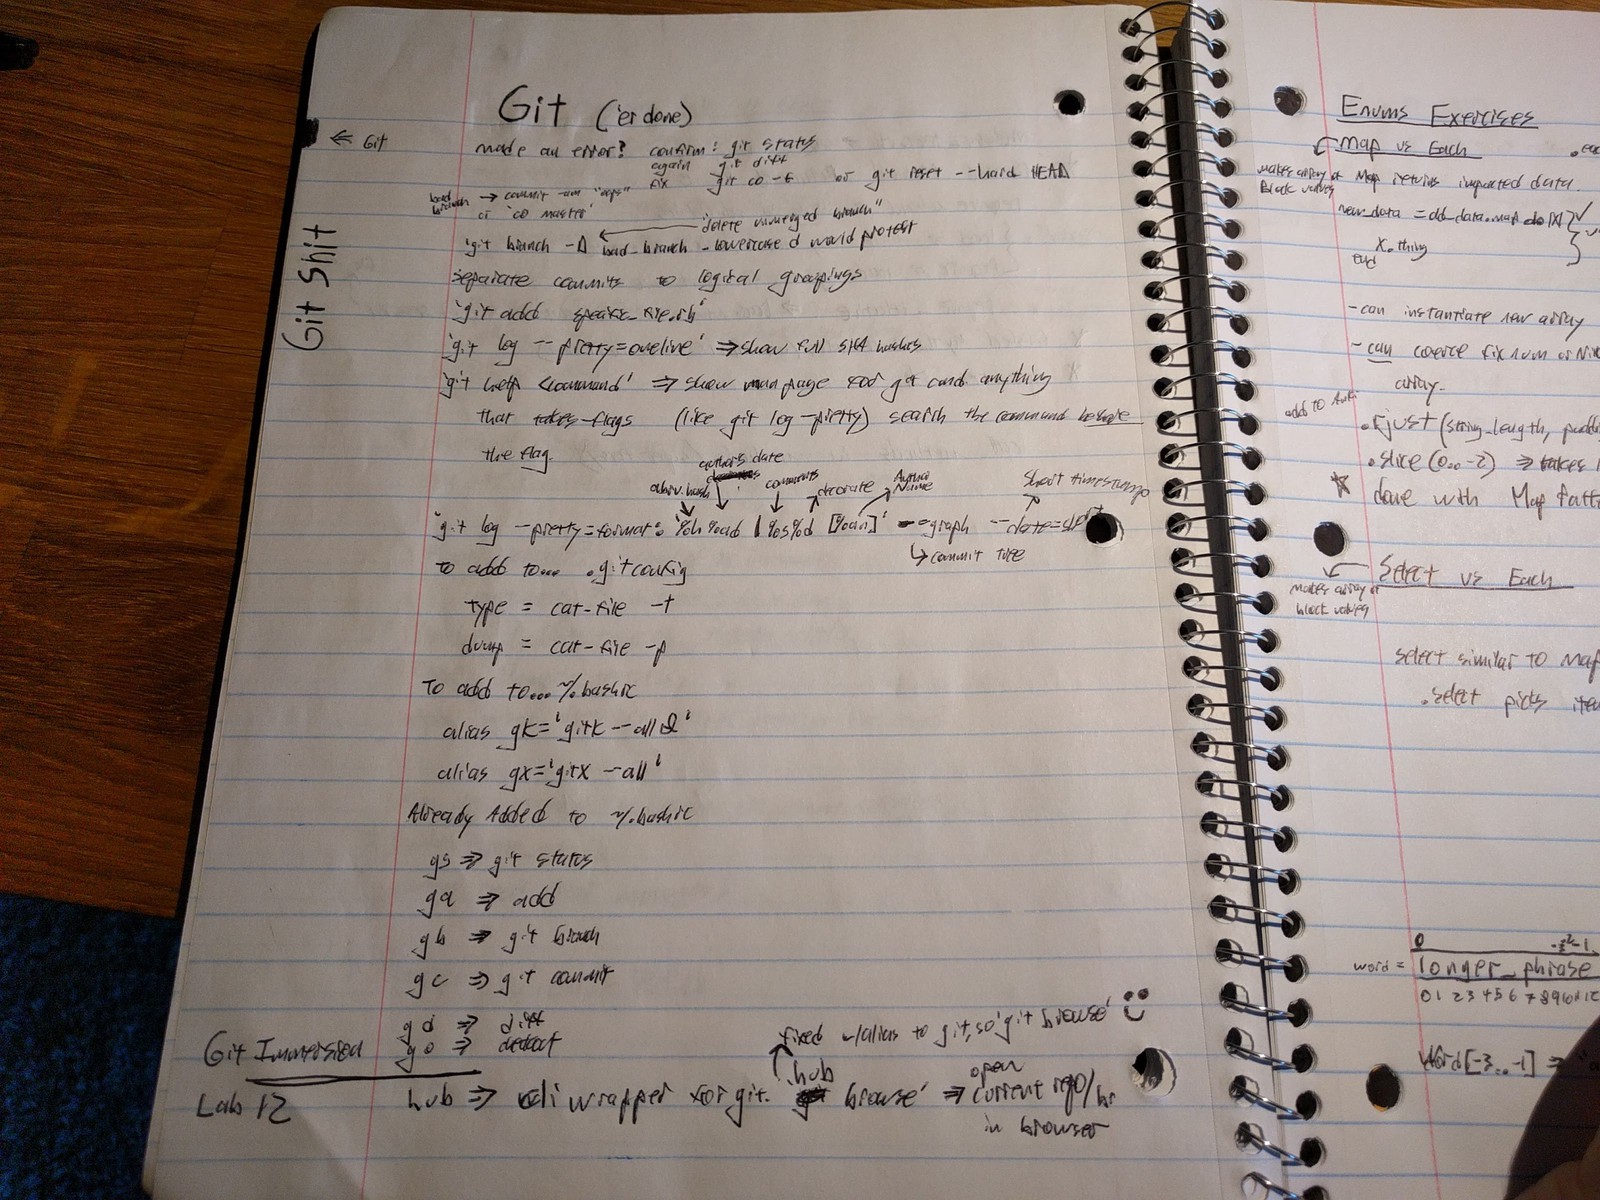 Git ('er done)
← Git
Git Shit
made an error? confirm: git status
again git diff
fix git co -f or git reset --hard HEAD
bad branch → commit -am "oops"
or 'co master'
"delete unmerged branch"
'git branch -D bad_branch - lowercase d would protest
separate commits to logical groupings
'git add specific_file.rb'
'git log --pretty=oneline' ⇒ show full SHA hashes
'git help <command>' ⇒ show man page for git cmd. anything
that takes flags (like git log --pretty) search the command before
the flag
author's date
abbrv. hash comments decorate Author Name Short timestamp
'git log --pretty=format: '%h %ad | %s%d [%an]' --graph --date=short
↳ commit tree
to add to... .gitconfig
type = cat-file -t
dump = cat-file -p
To add to... ~/.bashrc
alias gk='gitk --all&'
alias gx='gitx --all'
Already Added to ~/.bashrc
gs ⇒ git status
ga ⇒ add
gb ⇒ git branch
gc ⇒ git commit
gd ⇒ diff
go ⇒
Git Immersion
Lab 12
fixed w/alias to git, so 'git browse' :)
hub ⇒ cli wrapper for git. 'hub browse' ⇒ open current repo/br
in browser
Enums Exercises
Map vs Each
makes array of block values
Map returns impacted data.
new_data = db_data.map do |x|
x.thing
end
- can instantiate new array
- can coerce fixnum or
array.
add to Anki
.rjust (string_length,
.slice (0..-2) ⇒ takes
done with Map
Select vs Each
makes array of block values
select similar to Map
.select picks
0 -2 -1
word = longer_phrase
0 1 2 3 4 5 6 7 8 9 10 11 12
word[-3..-1] ⇒